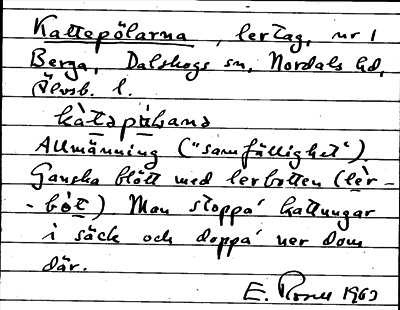 Kattepölarna, lertag, nr 1
Berga, Dalskogs sn, Nordals hd,
Älvsb. l.
Allmänning ("samfällighet")
Ganska blött med lerbotten (lèr-
-bòt) Man stoppa' kattungar
i säck och doppa' ner dom
där.
E. 1963